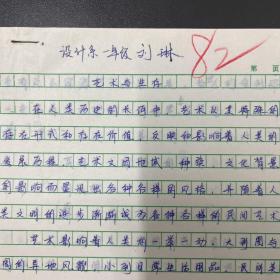 一.
设计系一年级 刘琳
82
第 页
艺术与生存
在人类历史的长河中,艺术以其特殊的
存在形式和存在价值,反映和影响着人类的
发展历程。艺术文因地域、种族、文化背景
的影响而呈现出各种各样的风格,并随着人
类文明的进步渐渐成为各种各样的民间艺术
艺术影响着人类的一举一动,大到周与
国的异地风貌,小到日常生活用品、民间